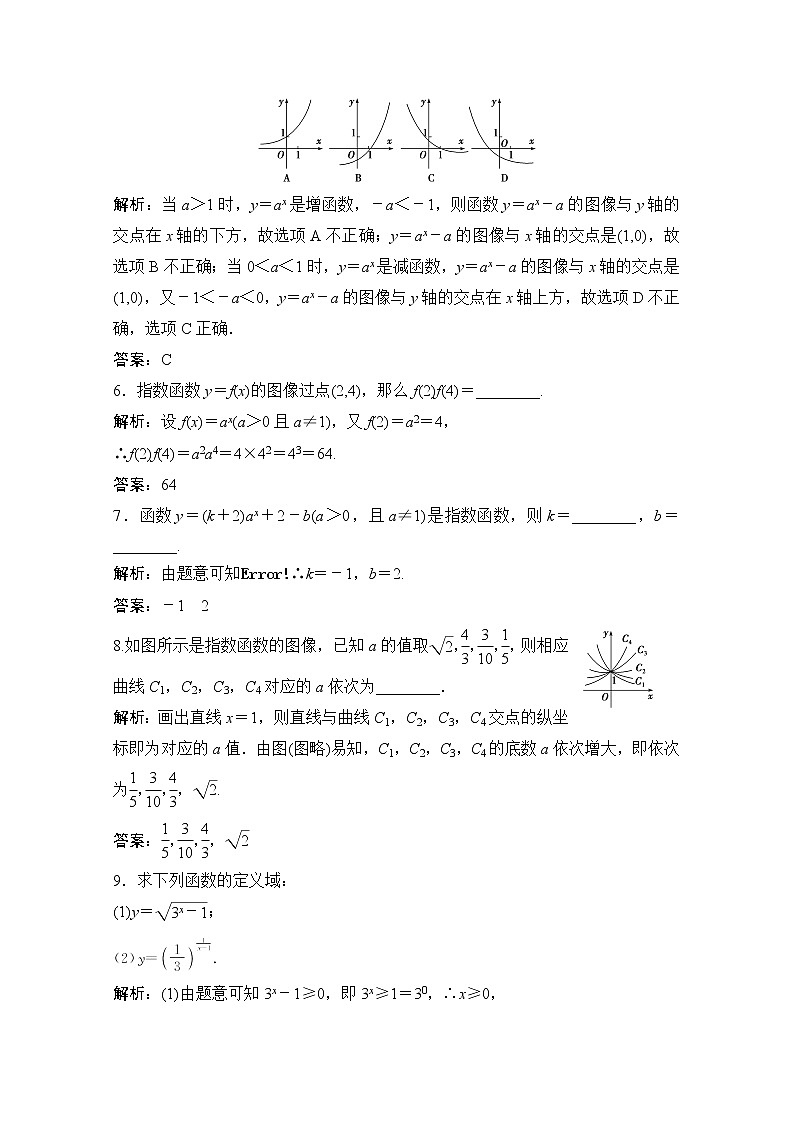 y y y y
1 1 1 1 O
x x x x
O 1 O 1 O 1 1
A B C D
解析:当 a>1 时,y=aˣ是增函数,-a<-1,则函数 y=aˣ-a 的图像与 y 轴的
交点在 x 轴的下方,故选项 A 不正确;y=aˣ-a 的图像与 x 轴的交点是(1,0),故
选项 B 不正确;当 0<a<1 时,y=aˣ是减函数,y=aˣ-a 的图像与 x 轴的交点是
(1,0),又-1<-a<0,y=aˣ-a 的图像与 y 轴的交点在 x 轴上方,故选项 D 不正
确,选项 C 正确.
答案:C
6.指数函数 y=f(x)的图像过点(2,4),那么 f(2)f(4)=________.
解析:设 f(x)=aˣ(a>0 且 a≠1),又 f(2)=a²=4,
∴f(2)f(4)=a²a⁴=4×4²=4³=64.
答案:64
7.函数 y=(k+2)aˣ+2-b(a>0,且 a≠1)是指数函数,则 k=________,b=
________.
解析:由题意可知Error!∴k=-1,b=2.
答案:-1 2
8.如图所示是指数函数的图像,已知 a 的值取√2,4/3,3/10,1/5,则相应
曲线 C₁,C₂,C₃,C₄对应的 a 依次为________.
y C₄ C₃ C₂ C₁ 1 O x
解析:画出直线 x=1,则直线与曲线 C₁,C₂,C₃,C₄交点的纵坐
标即为对应的 a 值.由图(图略)易知,C₁,C₂,C₃,C₄的底数 a 依次增大,即依次
为1/5,3/10,4/3,√2.
答案:1/5,3/10,4/3,√2
9.求下列函数的定义域:
(1)y=√(3ˣ-1);
(2)y=(1/3)^(1/(x-1)).
解析:(1)由题意可知 3ˣ-1≥0,即 3ˣ≥1=3⁰,∴x≥0,